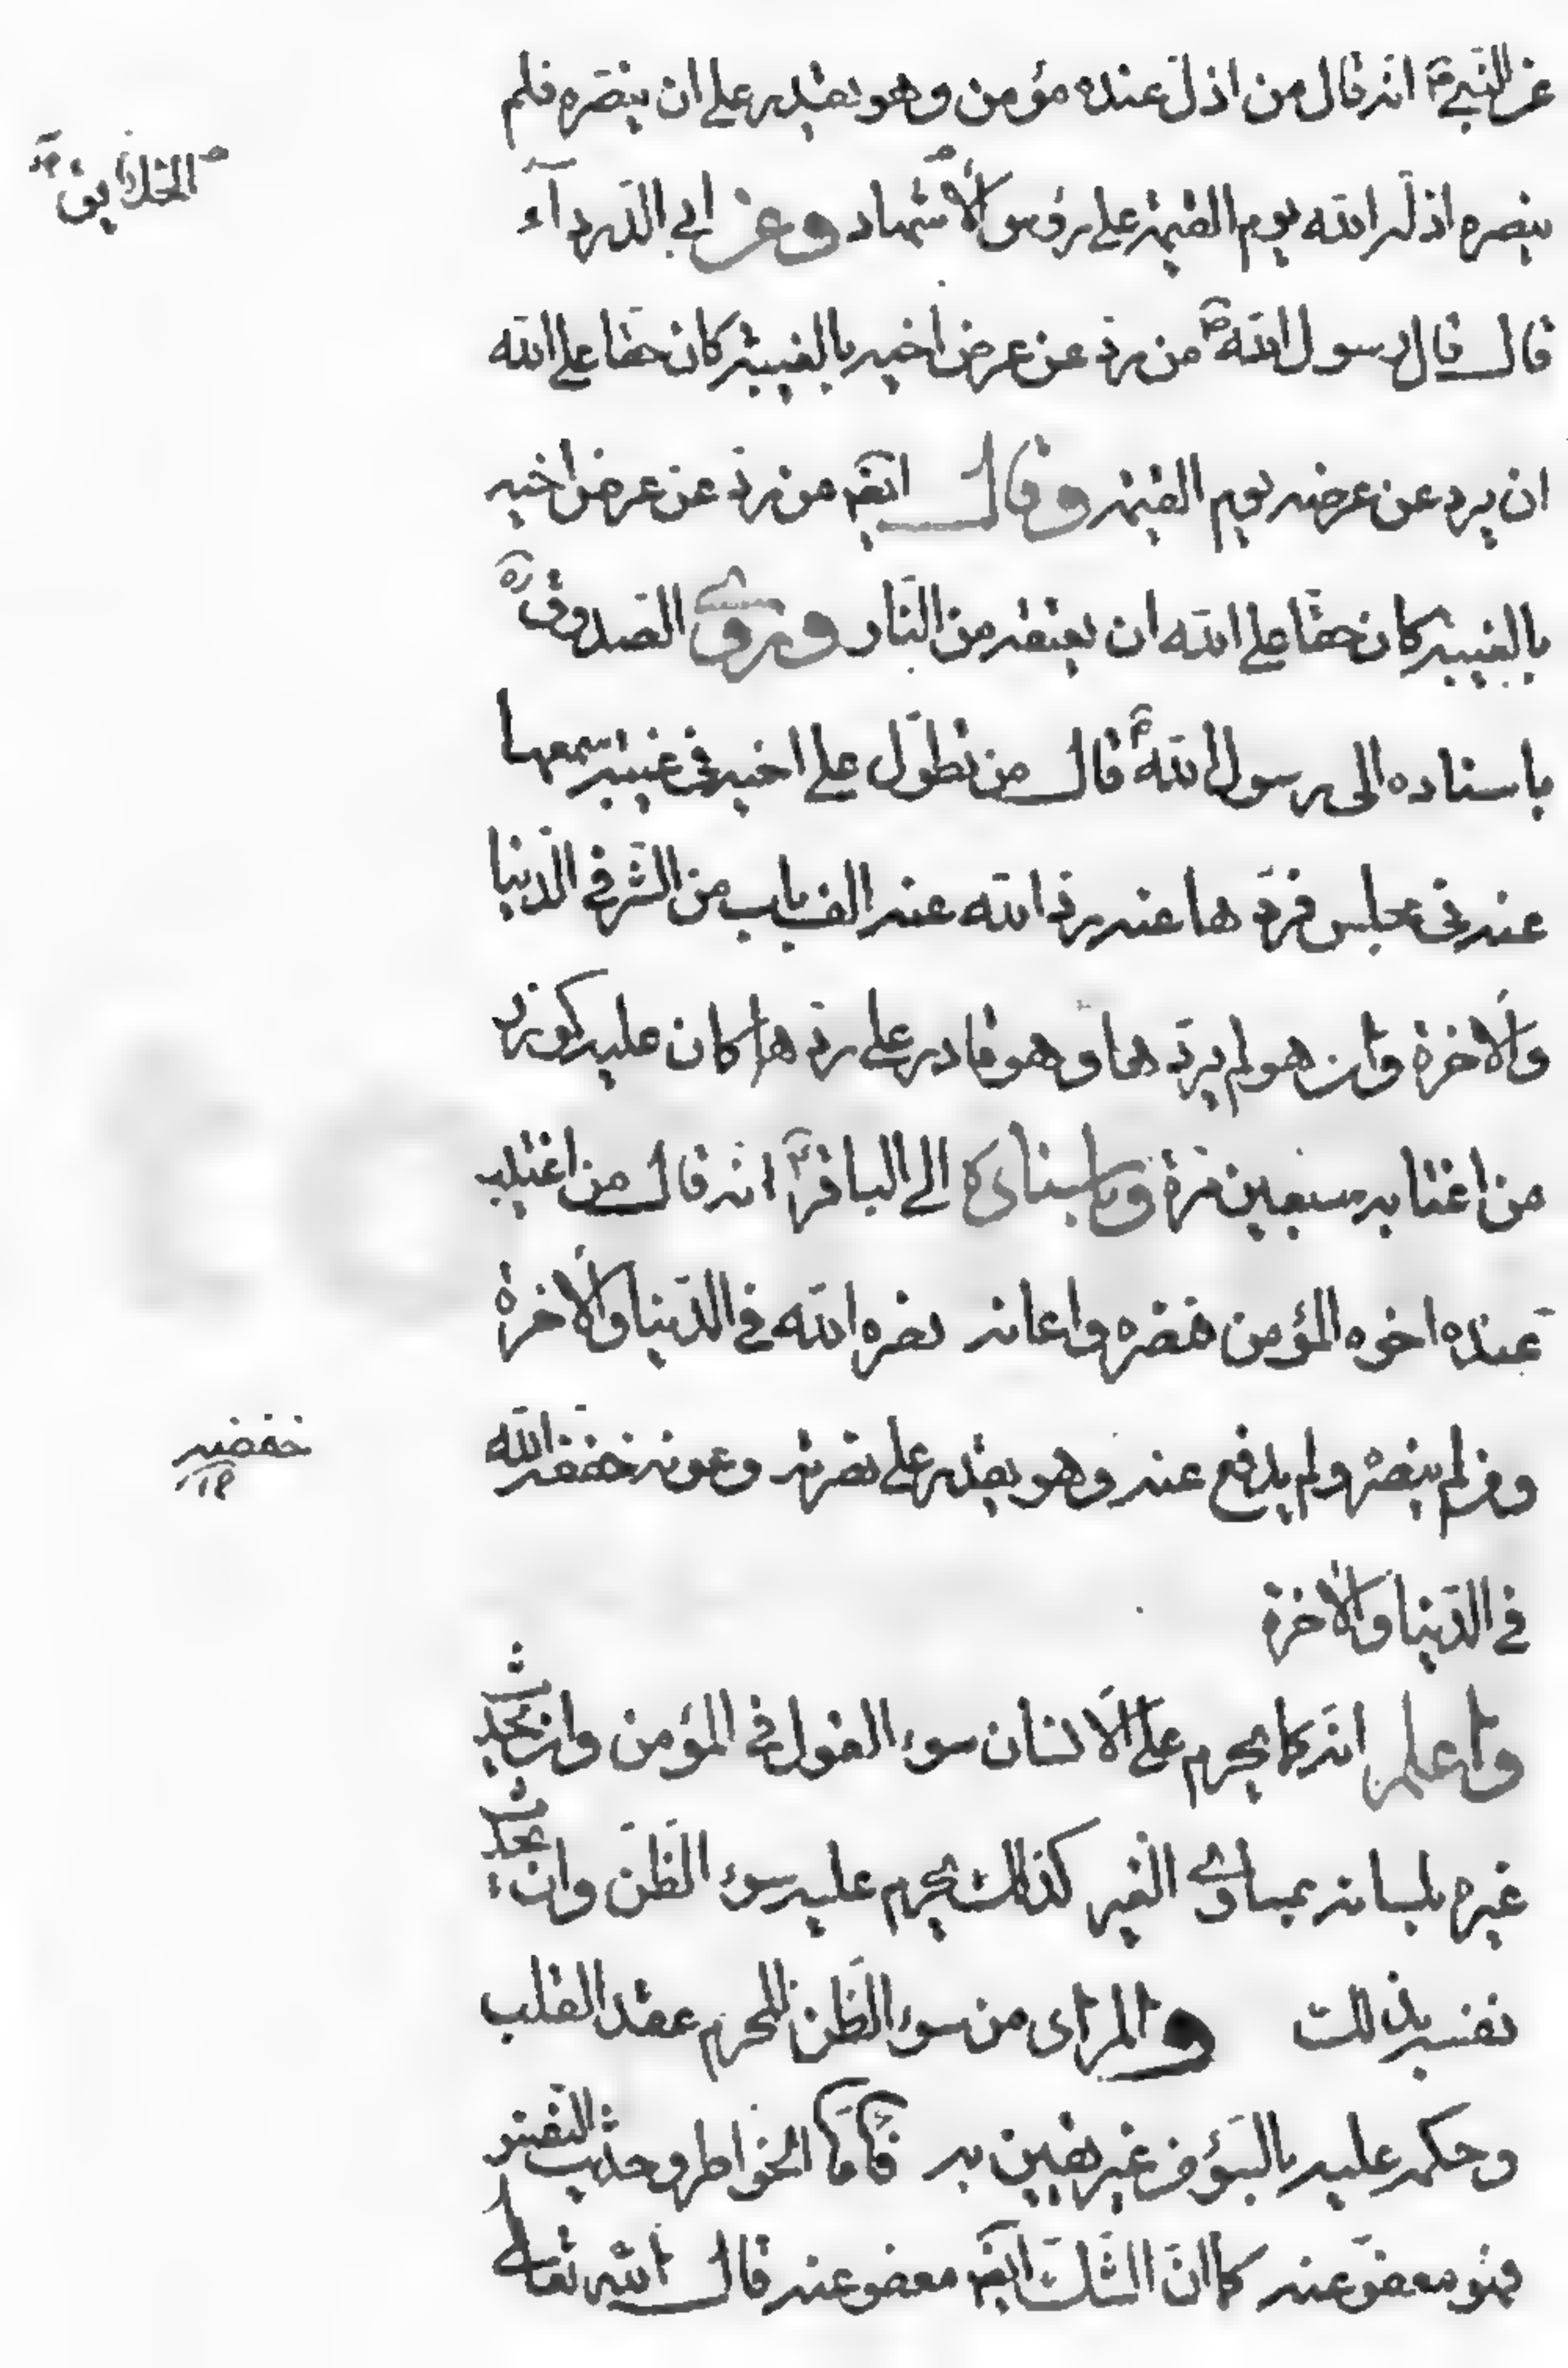 عن النبي ص انه قال من اذل عنده مؤمن وهو يقدر على ان ينصره فلم
ينصره اذله الله يوم القيمة على رؤس الأشهاد وعن ابي الدرداء
الخلايق
قال قال رسول الله ص من رد عن عرض اخيه بالغيبة كان حقا على الله
ان يرد عن عرضه يوم القيمة وقال ايضا من رد عن عرض اخيه
بالغيبة كان حقا على الله ان يعتقه من النار وروى الصدوق ره
باسناده الى رسول الله ص قال من تطول على اخيه في غيبة سمعها
عنه في مجلس فردها عنه رد الله عنه الف باب من الشر في الدنيا
والآخرة وان هو لم يردها وهو قادر على ردها كان عليه كوزر
من اغتابه سبعين مرة وباسناده الى الباقر انه قال من اغتيب
عنده اخوه المؤمن فنصره واعانه نصره الله في الدنيا والآخرة
ومن لم ينصره ولم يدفع عنه وهو يقدر على نصرته وعونه خفضه الله
خفضه
في الدنيا والآخرة
واعلم انه كما يحرم على الانسان سوء القول في المؤمن وان يحدث
غيره بلسانه بمساوي الغير كذلك يحرم عليه سوء الظن وان يحدث
نفسه بذلك والمراد من سوء الظن المحرم عقد القلب
وحكمه عليه بالسوء من غير يقين به فأما الخواطر وحديث النفس
فهو معفو عنه كما ان الشك ايضا معفو عنه قال الله تعالى